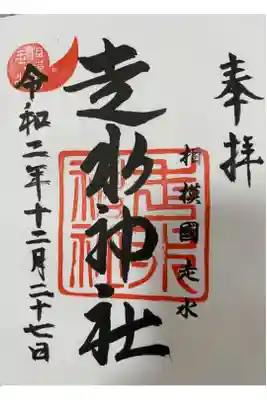 奉拝
相模國走水
走水神社
令和二年十二月二十七日
走水神社